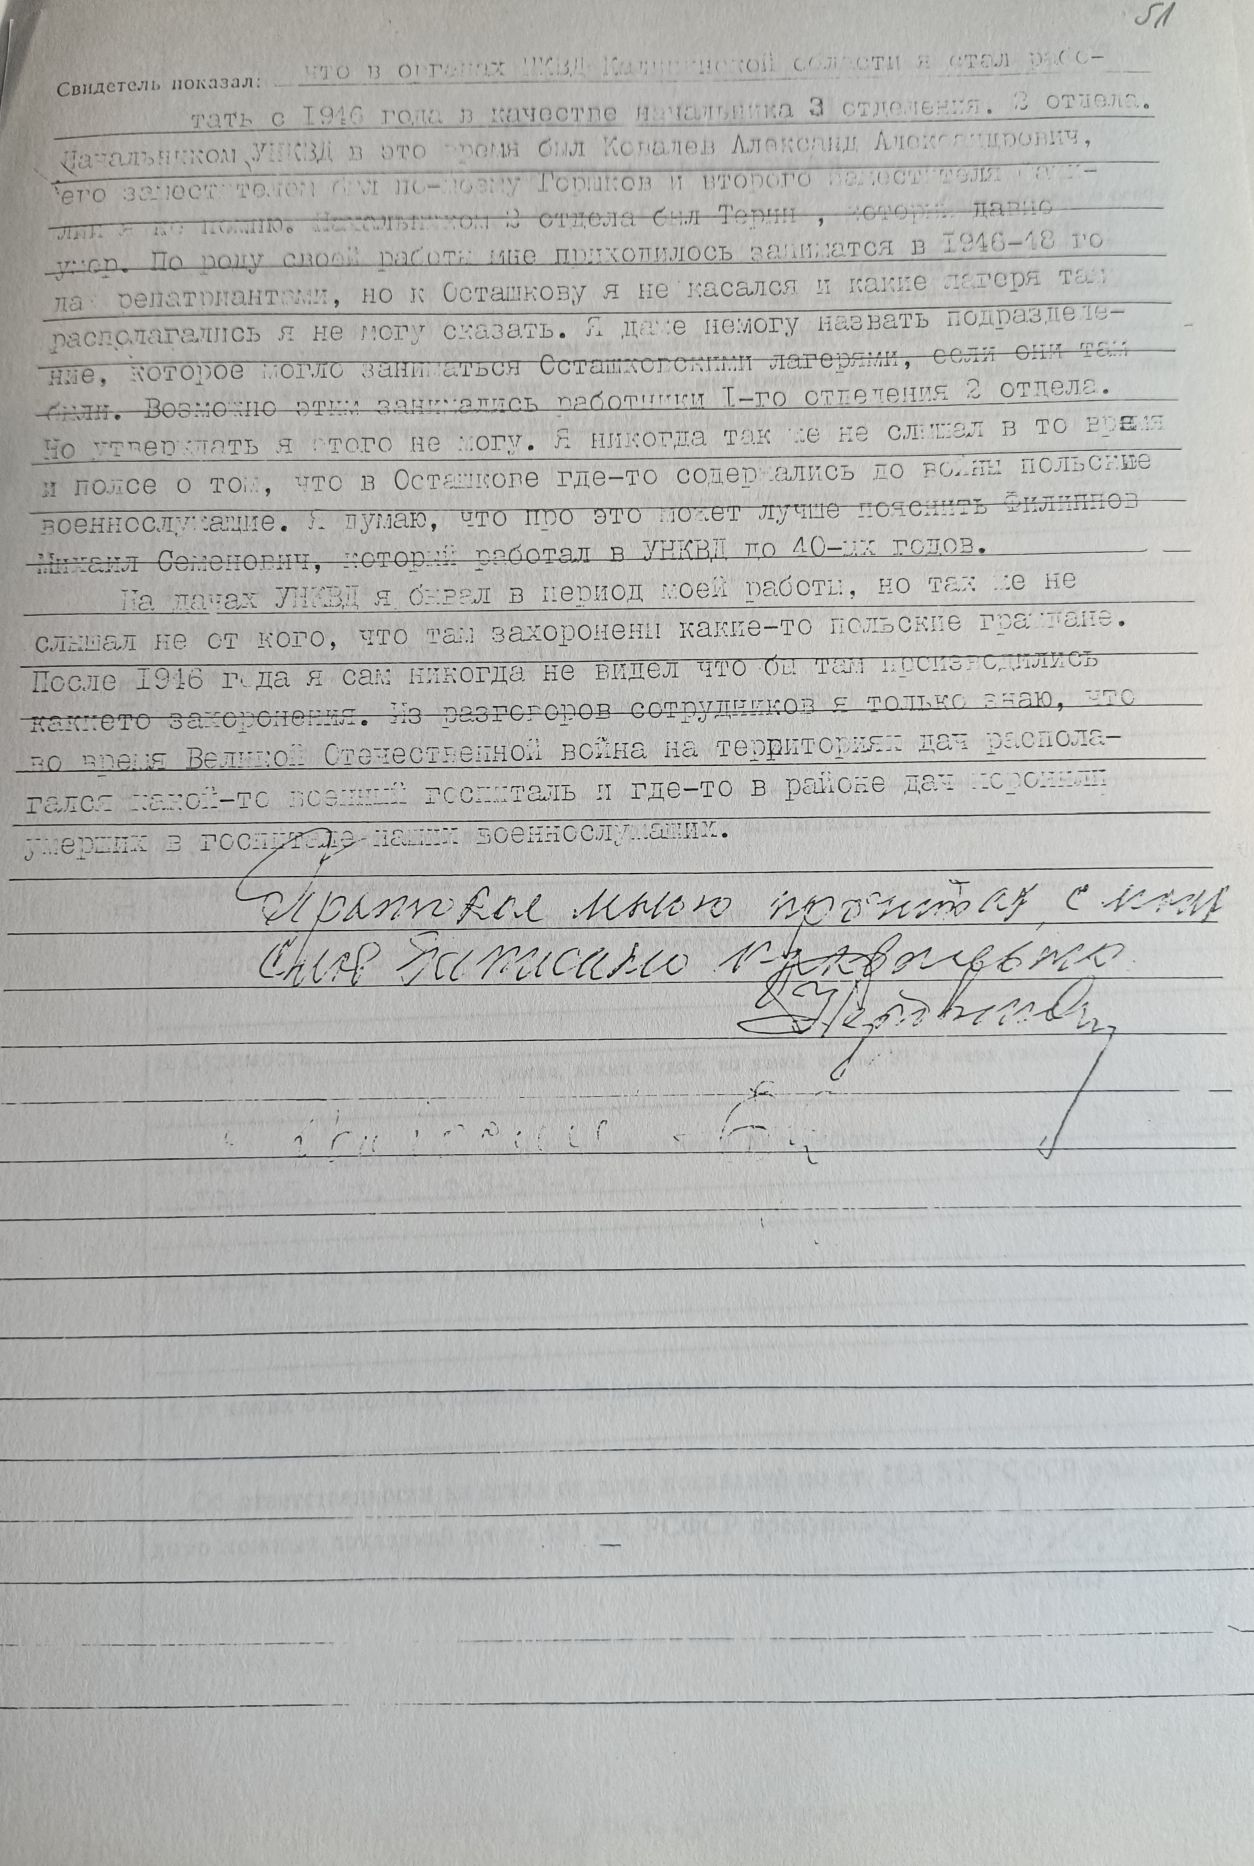 51
Свидетель показал: что в органах УНКВД Калининской области я стал рабо-
тать с 1946 года в качестве начальника 3 отделения. 2 отдела.
Начальником УНКВД в это время был Ковалев Александ Александрович,
его заместителем был по-моему Горшков и второго заместителя фами-
лии я не помню. Начальником 2 отдела был Терин , который давно
умер. По роду своей работы мне приходилось заниматся в 1946-48 го
да репатриантами, но к Осташкову я не касался и какие лагеря там
располагались я не могу сказать. Я даже немогу назвать подразделе-
ние, которое могло заниматься Осташковскими лагерями, если они там
были. Возможно этим занимались работники I-го отделения 2 отдела.
Но утверждать я этого не могу. Я никогда так же не слышал в то время
и полсе о том, что в Осташкове где-то содержались до войны польские
военнослужащие. Я думаю, что про это может лучше пояснить Филиппов
Михаил Семенович, который работал в УНКВД до 40-их годов.
На дачах УНКВД я бывал в период моей работы, но так же не
слышал не от кого, что там захоронены какие-то польские граждане.
После 1946 года я сам никогда не видел что бы там производились
какието захоронения. Из разговоров сотрудников я только знаю, что
во время Великой Отечественной война на территориях дач распола-
гался какой-то военный госпиталь и где-то в районе дач хоронили
умерших в госпитале наших военнослужащих.
Протокол мною прочитан, с моих
слов записано правильно